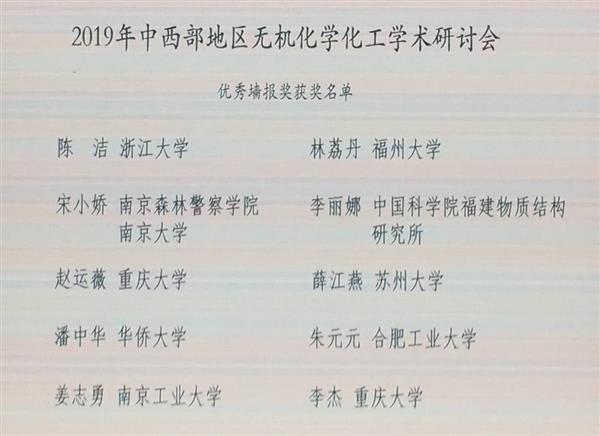 2019年中西部地区无机化学化工学术研讨会
优秀墙报奖获奖名单
陈 洁 浙江大学
林荔丹 福州大学
宋小娇 南京森林警察学院
南京大学
李丽娜 中国科学院福建物质结构
研究所
赵运薇 重庆大学
薛江燕 苏州大学
潘中华 华侨大学
朱元元 合肥工业大学
姜志勇 南京工业大学
李杰 重庆大学